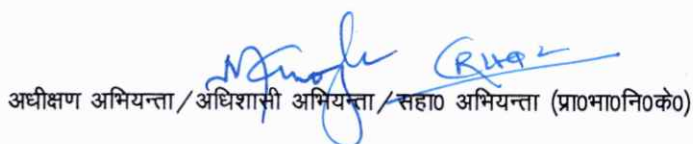 अधीक्षण अभियन्ता/अधिशासी अभियन्ता/सहा0 अभियन्ता (प्रा0भा0नि0के0)